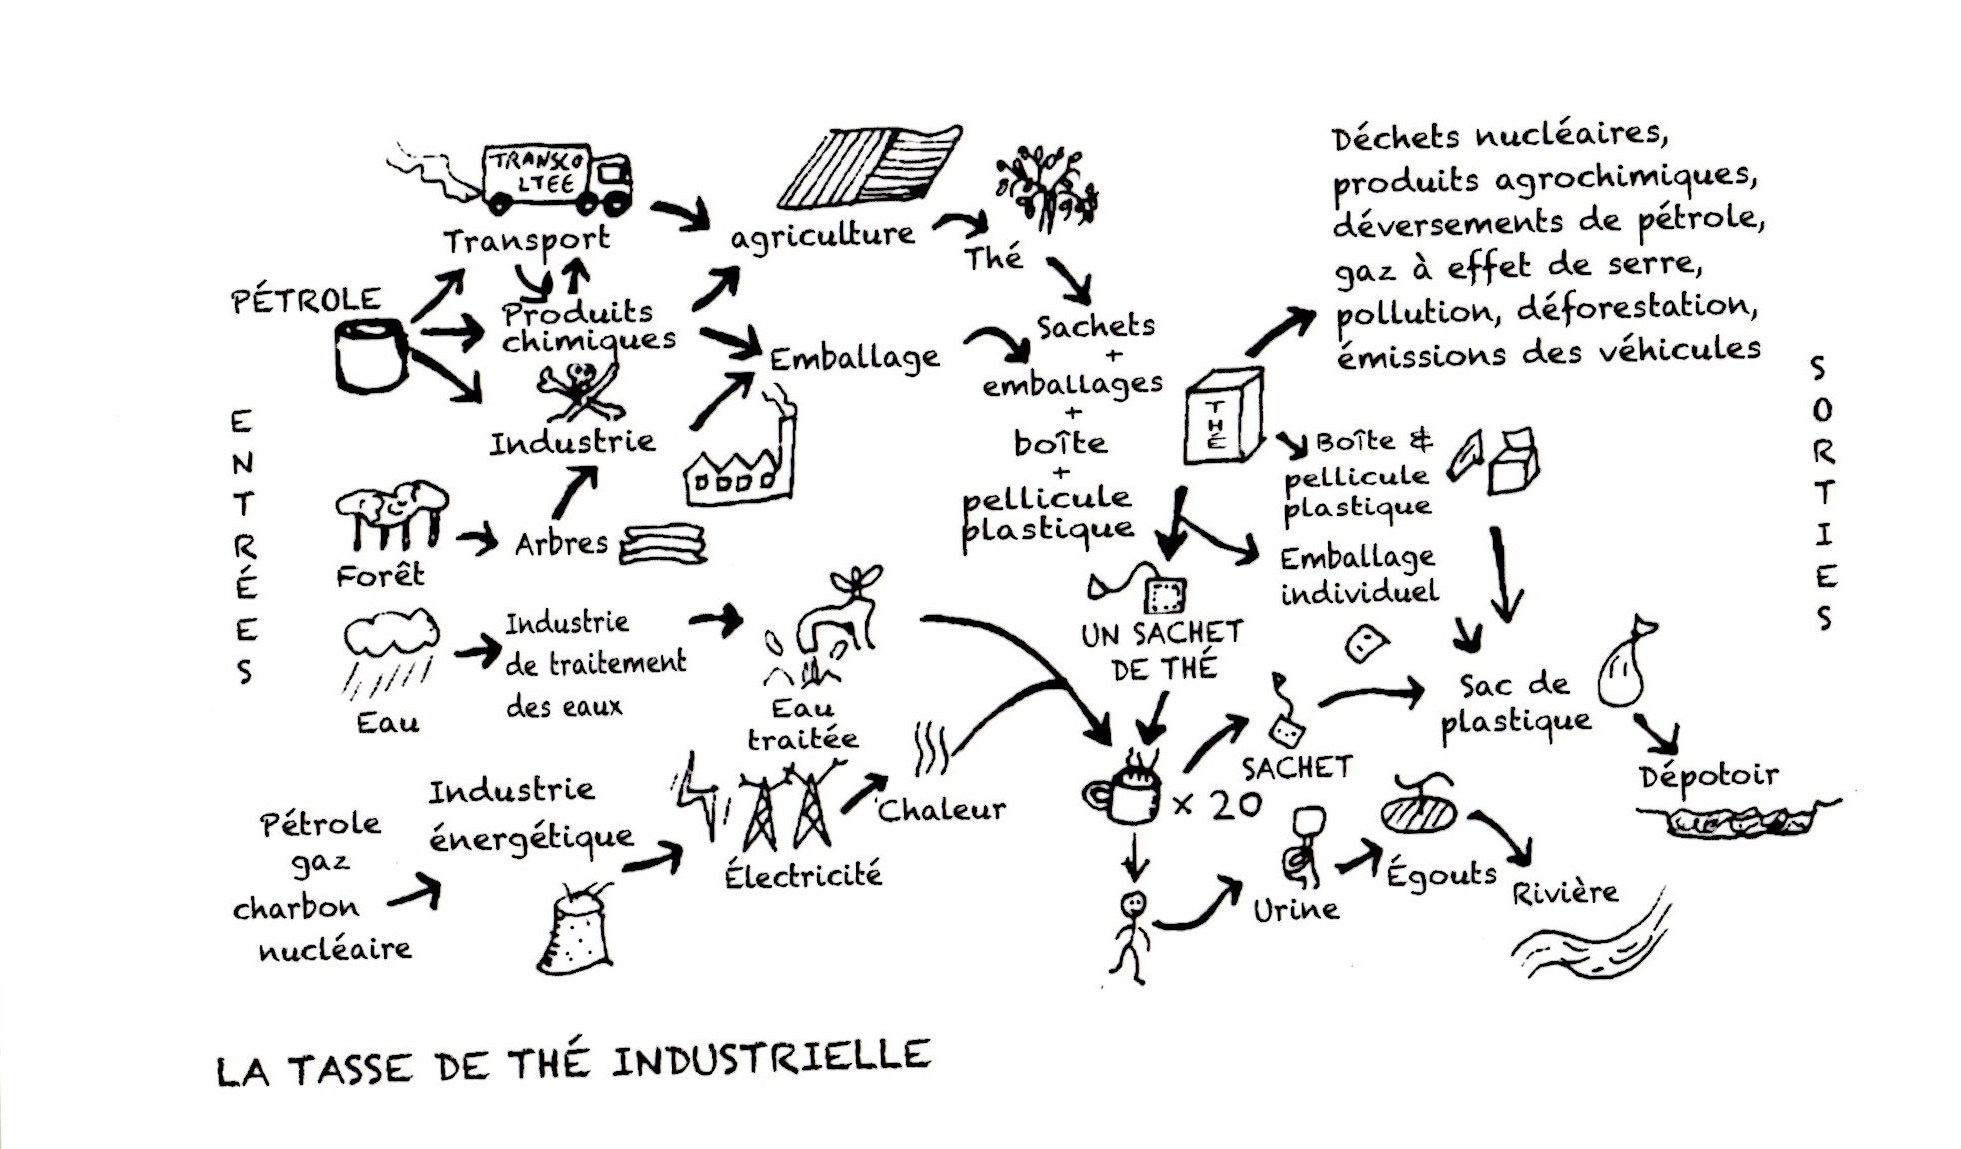 TRANSCO
LTEE
Transport
agriculture
Thé
PÉTROLE
Produits
chimiques
Industrie
Emballage
Sachets
+
emballages
+
boîte
+
pellicule
plastique
ENTRÉES
Forêt
Arbres
Eau
Industrie
de traitement
des eaux
Eau
traitée
Pétrole
gaz
charbon
nucléaire
Industrie
énergétique
Électricité
Chaleur
THÉ
Déchets nucléaires,
produits agrochimiques,
déversements de pétrole,
gaz à effet de serre,
pollution, déforestation,
émissions des véhicules
Boîte &
pellicule
plastique
Emballage
individuel
UN SACHET
DE THÉ
x 20
SACHET
Sac de
plastique
Dépotoir
Urine
Égouts
Rivière
SORTIES
LA TASSE DE THÉ INDUSTRIELLE